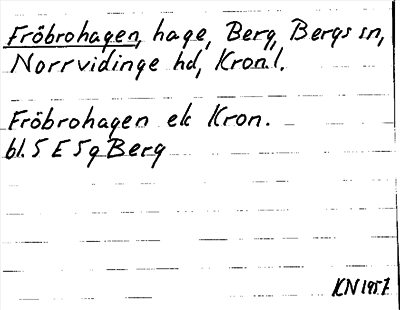 Fröbrohagen, hage, Berg, Bergs sn,
Norrvidinge hd, Kron.l.
Fröbrohagen ek Kron.
bl. 5 E 5g Berg
KN 1957